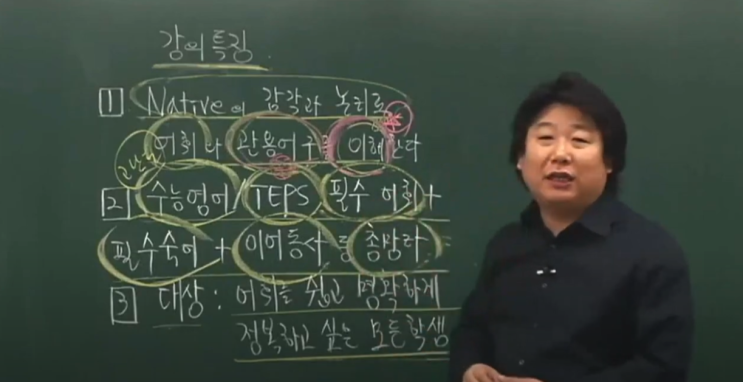 강의특징
1 Native의 감각과 논리로
어휘나 관용어구를 이해한다
2 수능영어/TEPS 필수 어휘+
필수숙어 + 이어동사를 총망라
3 대상: 어휘를 쉽고 명확하게
정복하고 싶은 모든 학생